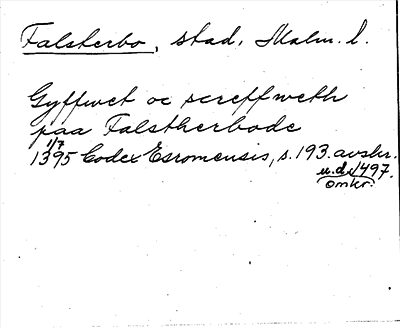 Falsterbo, stad, Malm. l.
Gyffwet oc screffweth
paa Falstherbode
1/7
1395 Codex Esromensis, s. 193. avskr.
u. d. 1497.
omkr.